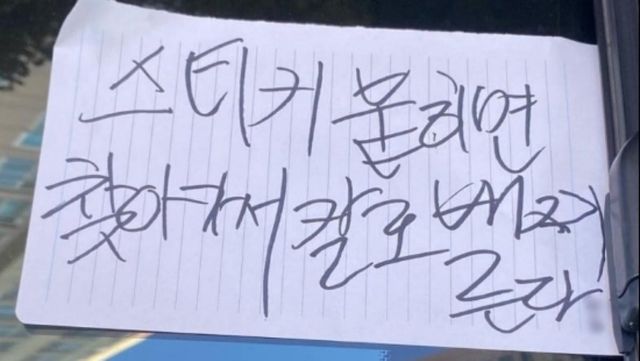 스티커 붙히면
찾아가서 칼로 배지
른다